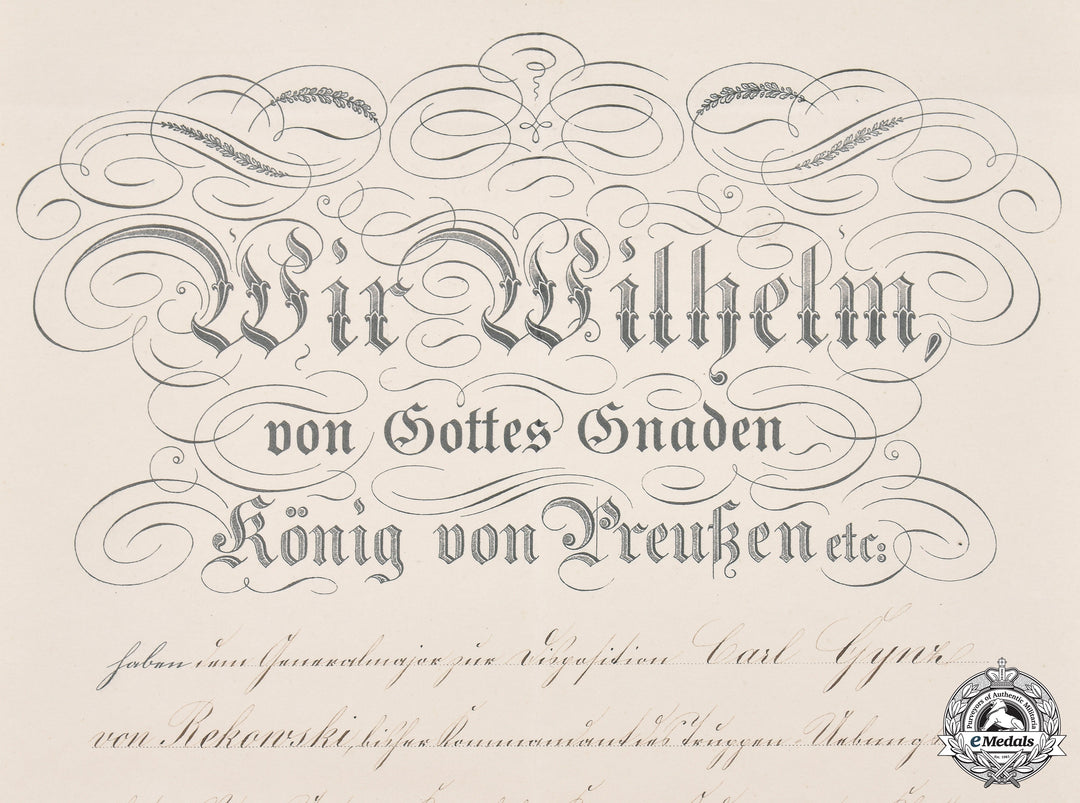 Wir Wilhelm,
von Gottes Gnaden
König von Preußen etc:
haben dem Generalmajor zur Disposition Carl Gynz
von Rekowski, bisher Kommandant des Truppen-Uebungs
Purveyors of Authentic Militaria
eMedals